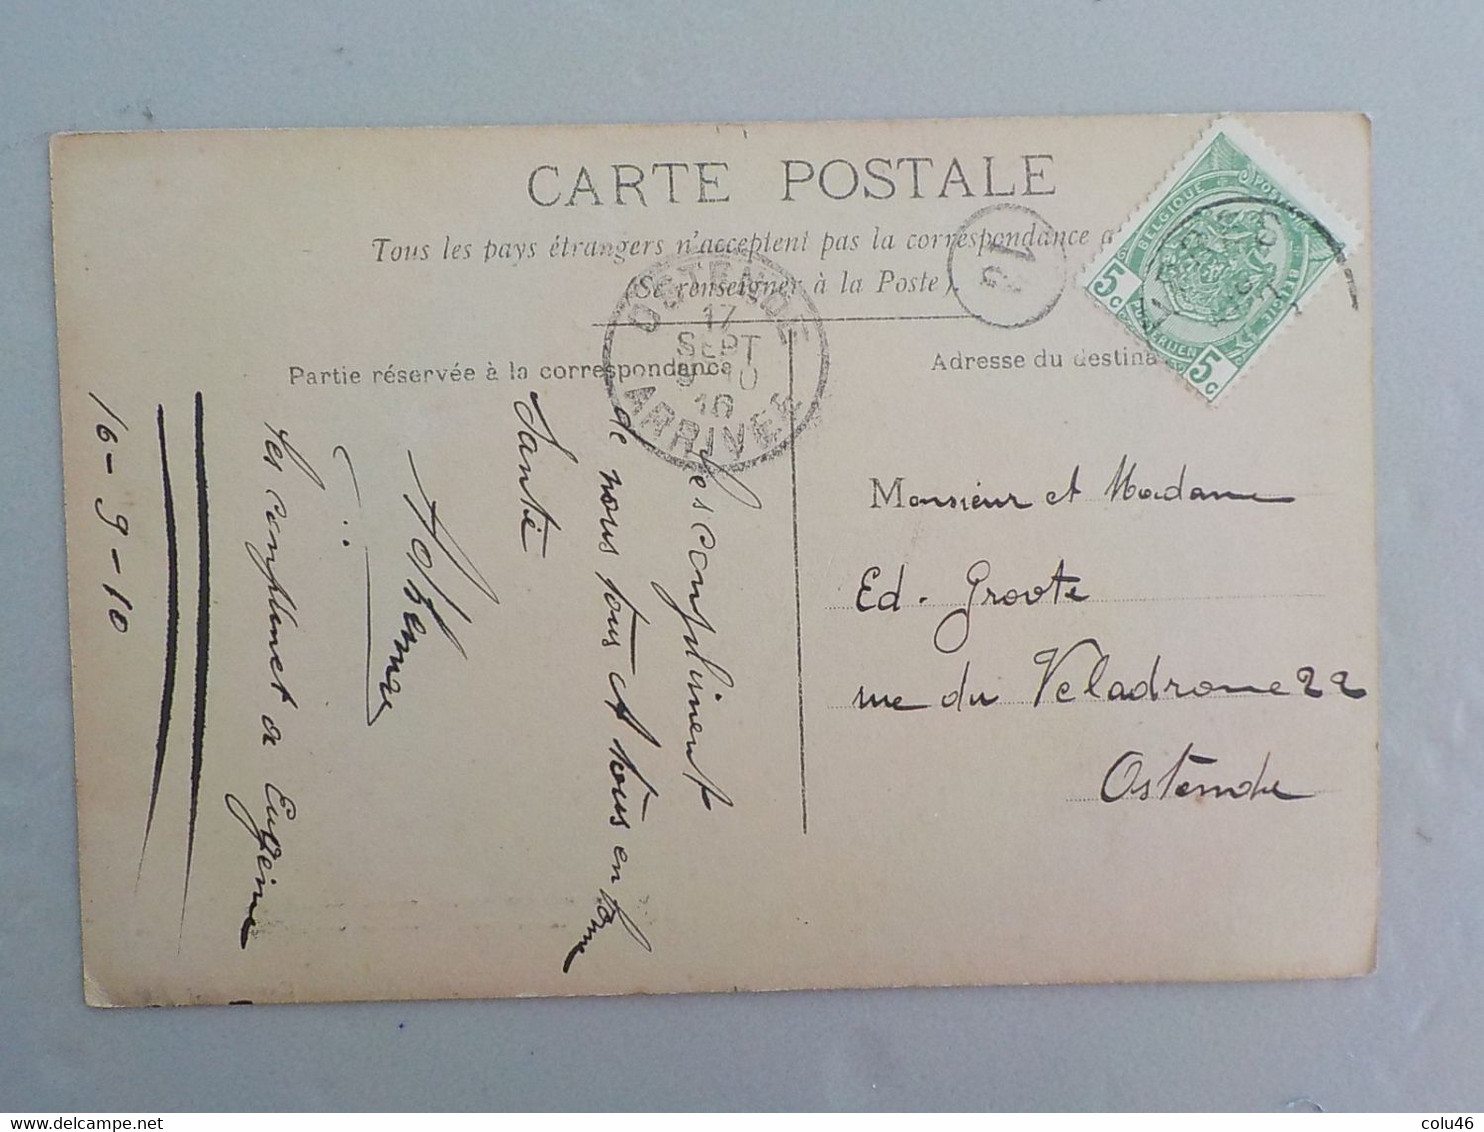 CARTE POSTALE
Tous les pays étrangers n'acceptent pas la correspondance a
(Se renseigner à la Poste).
Partie réservée à la correspondance
Adresse du destina
OSTENDE
17
SEPT
10
ARRIVEE
13
BELGIQUE
POS
BELGIE
5c
5c
Monsieur et Madame
Ed. Groote
rue du Veladrome 22
Ostende
les compliment
de nous tous et tous en bonne
Santé
les compliment a Eugeine
16-9-10
delcampe.net
colu46